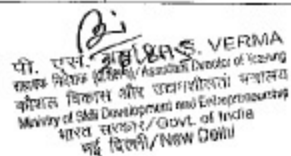 पी. एस. S. VERMA
निदेशक Director of Training
कौशल विकास और उद्यमशीलता मंत्रालय
Ministry of Skill Development and Entrepreneurship
भारत सरकार/Govt. of India
नई दिल्ली/New Delhi